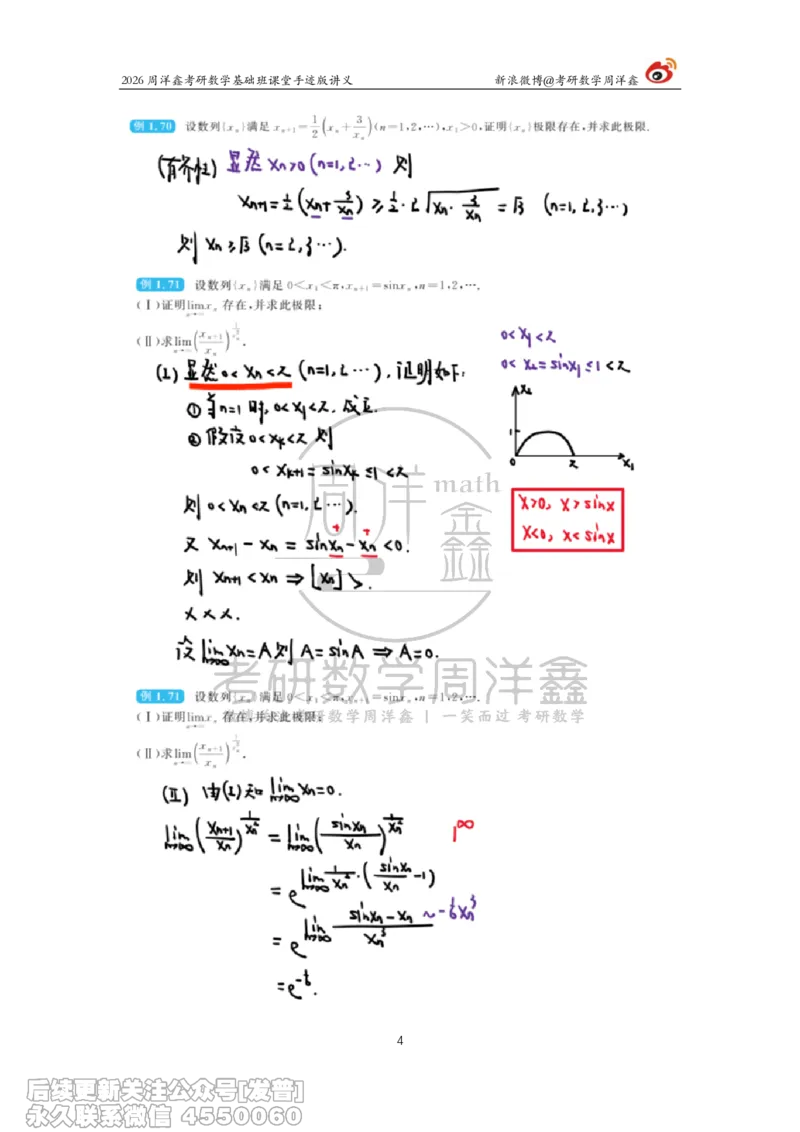 2026 周洋鑫考研数学基础班课堂手迹版讲义 新浪微博@考研数学周洋鑫
例 1.70 设数列{xₙ}满足 xₙ₊₁=1/2(xₙ+3/xₙ)(n=1,2,⋯),x₁>0,证明{xₙ}极限存在,并求此极限.
(有界性) 显然 xₙ>0 (n=1,2,⋯) 则
xₙ₊₁=1/2(xₙ+3/xₙ)≥1/2·2√(xₙ·3/xₙ)=√3 (n=1,2,3⋯)
则 xₙ≥√3 (n=2,3⋯).
例 1.71 设数列{xₙ}满足 0<x₁<π,xₙ₊₁=sinxₙ,n=1,2,⋯.
(Ⅰ)证明lim(n→∞)xₙ 存在,并求此极限;
(Ⅱ)求lim(n→∞)(xₙ₊₁/xₙ)^(1/xₙ²).
0<x₁<π
0<x₂=sinx₁≤1<π
(Ⅰ) 显然 0<xₙ<π (n=1,2⋯), 证明如下:
① 当n=1时, 0<x₁<π, 成立.
② 假设 0<xₖ<π 则
0<xₖ₊₁=sinxₖ≤1<π
则 0<xₙ<π (n=1,2⋯).
x₂
1
0 π x₁
x>0, x>sinx
x<0, x<sinx
又 xₙ₊₁-xₙ=sinxₙ-xₙ<0.
则 xₙ₊₁<xₙ⇒{xₙ}↘.
×××.
设 lim(n→∞)xₙ=A 则 A=sinA⇒A=0.
周洋鑫 math
考研数学周洋鑫
例 1.71 设数列{xₙ}满足 0<x₁<π,xₙ₊₁=sinxₙ,n=1,2,⋯.
(Ⅰ)证明lim(n→∞)xₙ 存在,并求此极限;
数学周洋鑫 | 一笑而过 考研数学
(Ⅱ)求lim(n→∞)(xₙ₊₁/xₙ)^(1/xₙ²).
(Ⅱ) 由(Ⅰ)知 lim(n→∞)xₙ=0.
lim(n→∞)(xₙ₊₁/xₙ)^(1/xₙ²)=lim(n→∞)(sinxₙ/xₙ)^(1/xₙ²) 1^∞
=e^(lim(n→∞) 1/xₙ²·(sinxₙ/xₙ-1))
=e^(lim(n→∞) (sinxₙ-xₙ)/xₙ³) ~-1/6xₙ³
=e^(-1/6).
4
后续更新关注公众号[发普]
永久联系微信 4550060